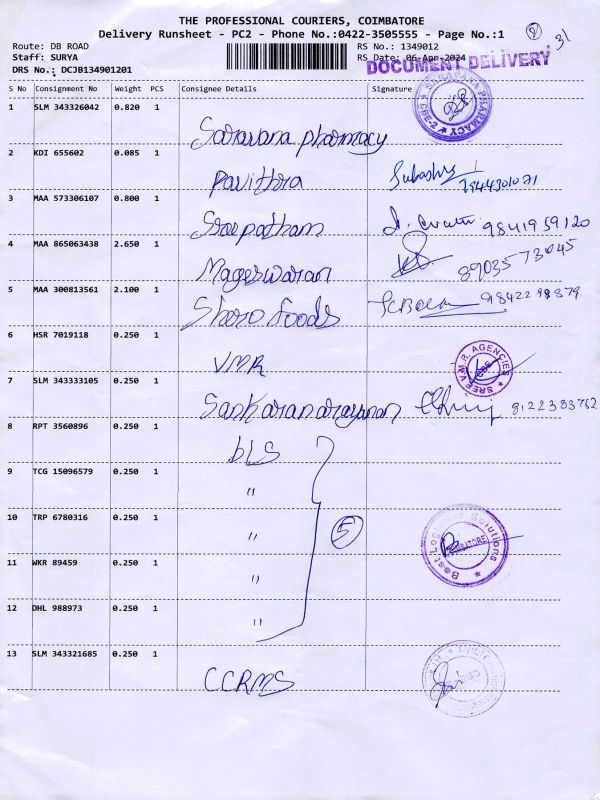 THE PROFESSIONAL COURIERS, COIMBATORE
Delivery Runsheet - PC2 - Phone No.:0422-3505555 - Page No.:1
Route: DB ROAD RS No.: 1349012 31
Staff: SURYA RS Date: 06-Apr-2024
DRS No.: DCJB134901201 DOCUMENT DELIVERY
S No Consignment No Weight PCS Consignee Details Signature
1 SLM 343326042 0.820 1 Saravana pharmacy
2 KDI 655602 0.085 1 Pavithra
3 MAA 573306107 0.800 1 9841959120
4 MAA 865063438 2.650 1 Mageswaran 8903573045
5 MAA 300813561 2.100 1 Foods
6 HSR 7019118 0.250 1 VMR SREE V.M.R. AGENCIES CBE
7 SLM 343333105 0.250 1 Sankaranarayanan 8122383762
8 RPT 3560896 0.250 1 bLS
9 TCG 15096579 0.250 1 "
10 TRP 6780316 0.250 1 " 5
11 WKR 89459 0.250 1 "
12 DHL 988973 0.250 1 "
13 SLM 343321685 0.250 1 CCRMS